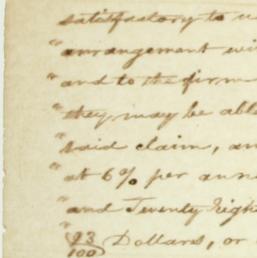 satisfactory to u
"arrangement wi
"and to the firm
"they may be abl
"said claim, an
"at 6% per ann
"and Seventy Eigh
"93/100 Dollars, or